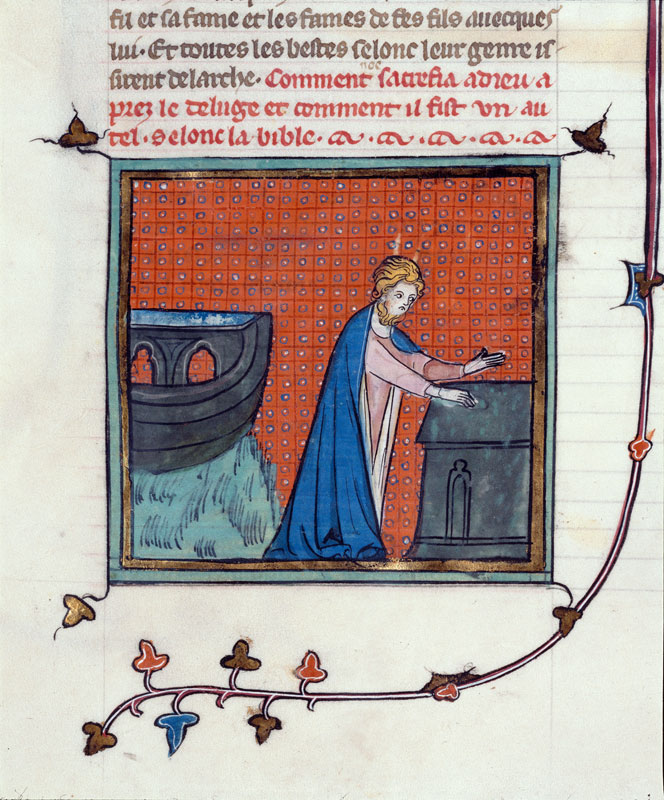 fu et sa fame et les fames de ses fils auecques
lui. Et toutes les bestes selonc leur genre is
sirent de larche. Comment sacrefia a dieu a
noe
prez le deluge et comment il fist un au
tel. selonc la bible.